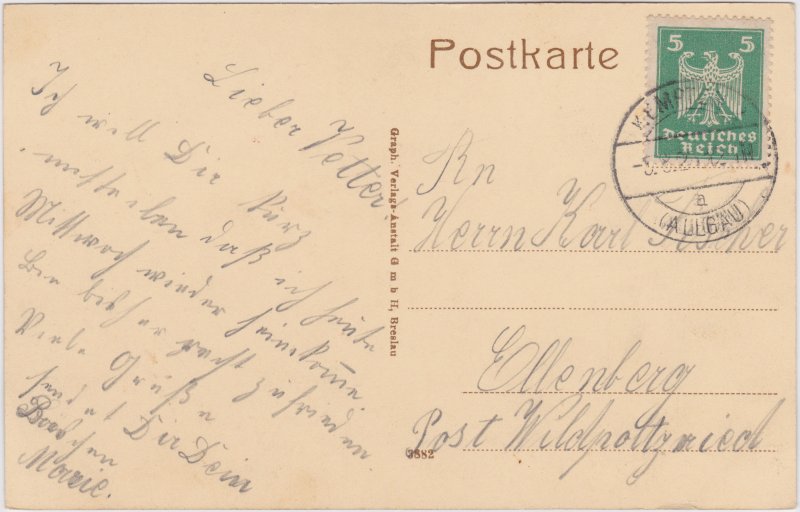 Postkarte
5 5
Deutsches
Reich
KEMP
(ALLGÄU)
Lieber Vetter!
Ich will Dir kurz
mitteilen daß ich heute
Mittwoch wieder heimkomme
Bin bisher recht zufrieden
Viele Grüße
sendet Dir Dein
Bäschen
Marie.
Graph. Verlags-Anstalt G m b H, Breslau
3882
Herrn Karl
Ellenberg
Post Wildpoltzried